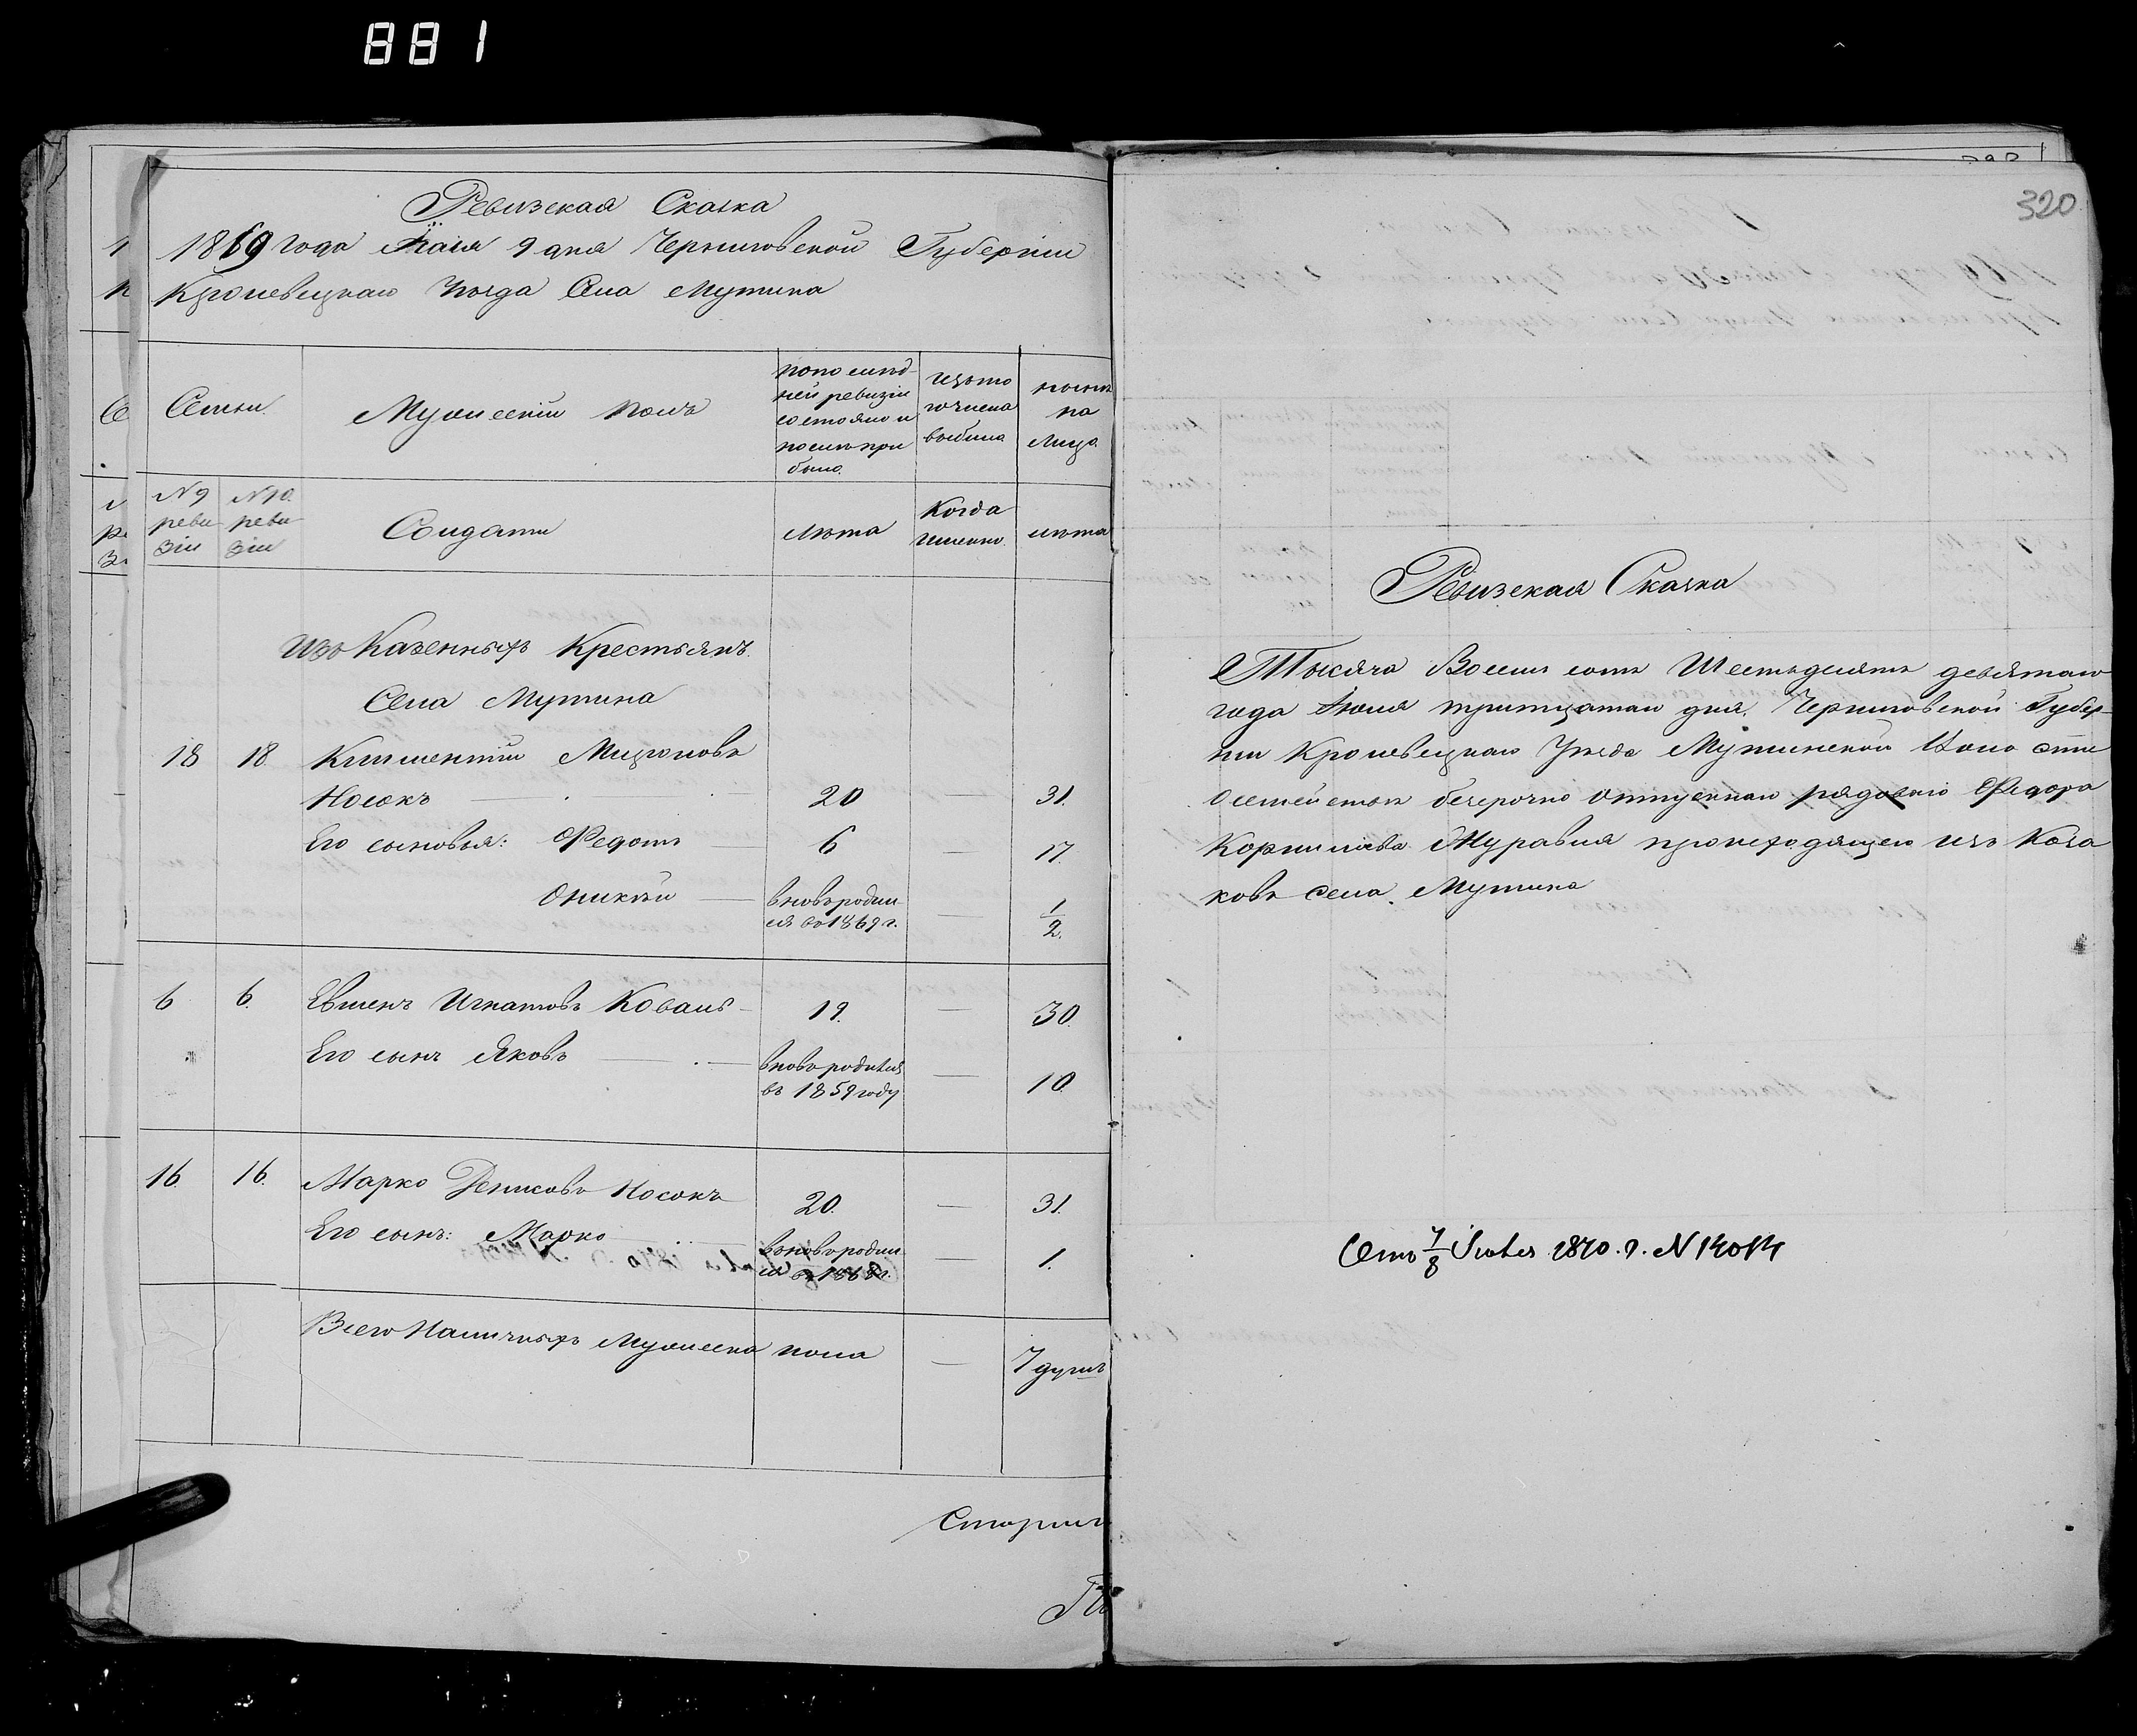 881
Ревизская Сказка
1869 года Маія 9 дня Черниговской Губерніи
Кролевецкаго Уѣзда Села Мутина
Семьи.
Мужескій полъ
по послѣд-
ней ревизіи
состояло и
послѣ при
было.
изъ то
го числа
выбыло
нынѣ
на
лицо.
№ 9
реви
зіи
№ 10.
реви
зіи
Солдаты
Лѣта
Когда
именно.
лѣта
Изъ Казенныхъ Крестьянъ.
Села Мутина
18 18. Климентій Мироновъ
Носокъ 20 — 31.
Его сыновья: Федотъ 6 — 17.
Оникѣй
вновь родил
ся въ 1869 г. — 1/2.
6 6. Евменъ Игнатовъ Коваль 19. — 30.
Его сынъ Яковъ
вновь родился
въ 1859 году — 10.
16. 16. Марко Денисовъ Носокъ 20. — 31.
Его сынъ: Марко
вновь родил
ся въ 1868 г. — 1.
Всего Наличныхъ Мужеска пола — 7 душъ
320
Ревизская Сказка
Тысяча Восемь сотъ Шестьдесятъ девятаго
года Іюля тритцатаго дня. Черниговской Губер-
ніи Кролевецкаго Уѣзда Мутинской Волости
О семействѣ безсрочно отпускнаго рядоваго Федора
Корнилова Муравля происходящего изъ Коза
ковъ села Мутина
7/8 1870. г. № 14014